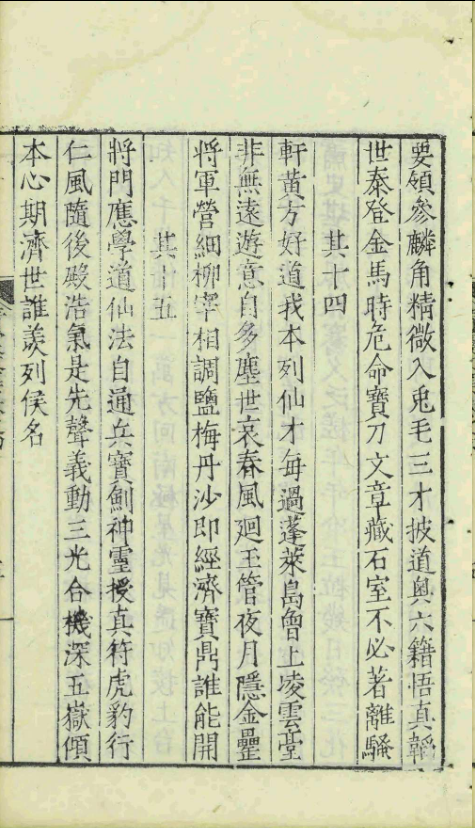 要領參麟角精微入兎毛三才披道奥六籍悟真韜
世泰登金馬時危命寶刀文章藏石室不必著離騷
其十四
軒黄方好道我本列仙才毎過蓬萊島曽上凌雲臺
非無遠遊意自多塵世哀春風廻玉管夜月隱金罍
將軍營細柳宰相調鹽梅丹沙即經濟寶鼎誰能開
其十五
將門應學道仙法自通兵寶劎神霊授真符虎豹行
仁風隨後殿浩氣是先聲義動三光合機深五嶽傾
本心期濟世誰羨列侯名